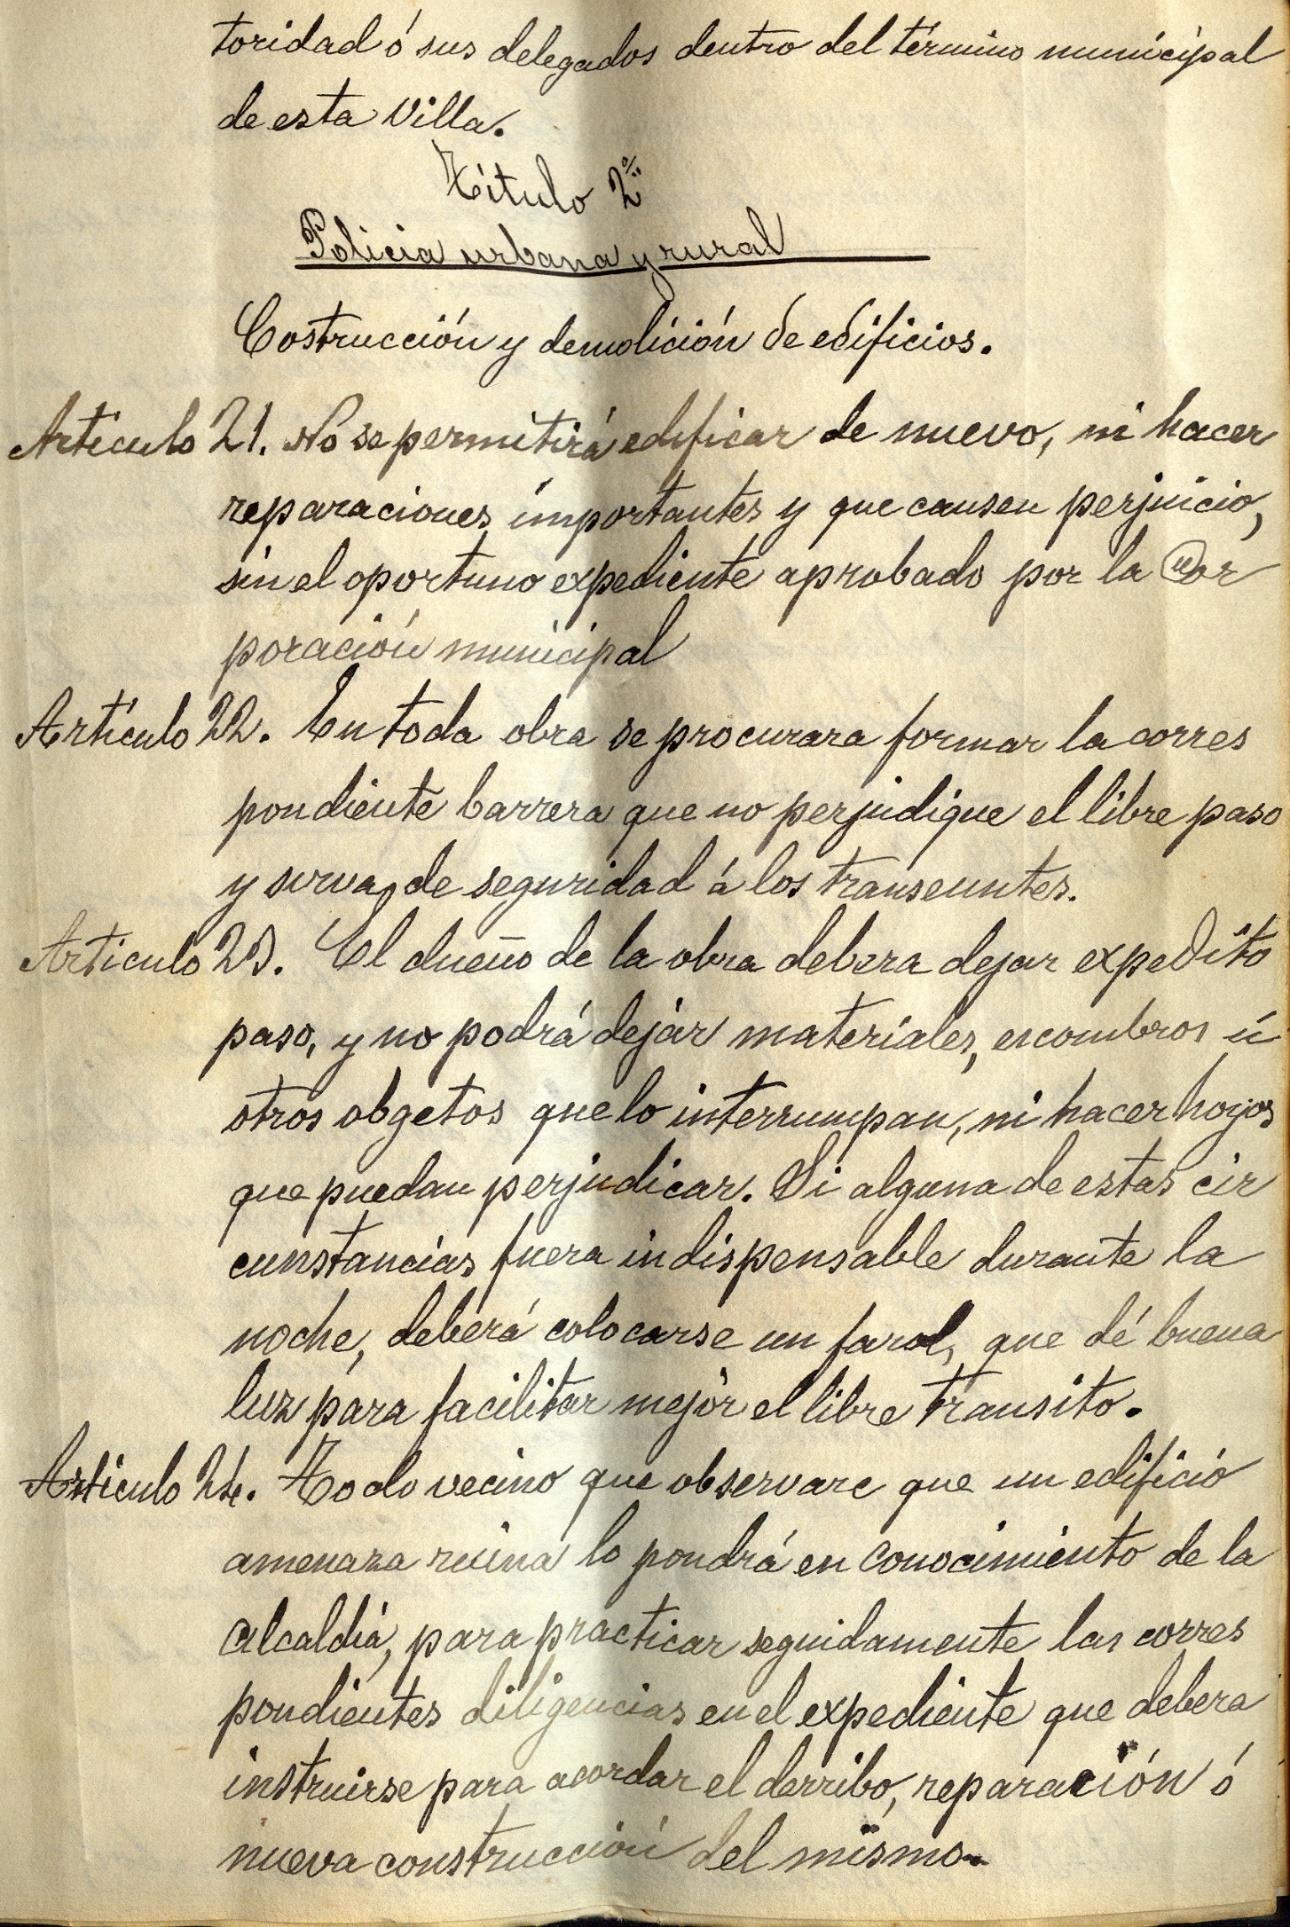 toridad ó sus delegados dentro del término municipal
de esta Villa.
Título 2º
Policia urbana y rural
Costrucción y demolición de edificios.
Articulo 21. No se permitirá edificar de nuevo, ni hacer
reparaciones importantes y que causen perjuicio,
sin el oportuno expediente aprobado por la Cor
poración municipal
Artículo 22. En toda obra se procurara formar la corres
pondiente barrera que no perjudique el libre paso
y sirva de seguridad á los transeuntes.
Articulo 23. El dueño de la obra debera dejar expedito
paso, y no podrá dejar materiales, escombros ú
otros obgetos que lo interrumpan, ni hacer hoyos
que puedan perjudicar. Si alguna de estas cir
cunstancias fuera indispensable durante la
noche, deberá colocarse un farol, que dé buena
luz para facilitar mejor el libre transito.
Articulo 24. Todo vecino que observare que un edificio
amenaza ruina lo pondrá en conocimiento de la
Alcaldía, para practicar seguidamente las corres
pondientes diligencias en el expediente que debera
instruirse para acordar el derribo, reparación ó
nueva construcción del mismo.